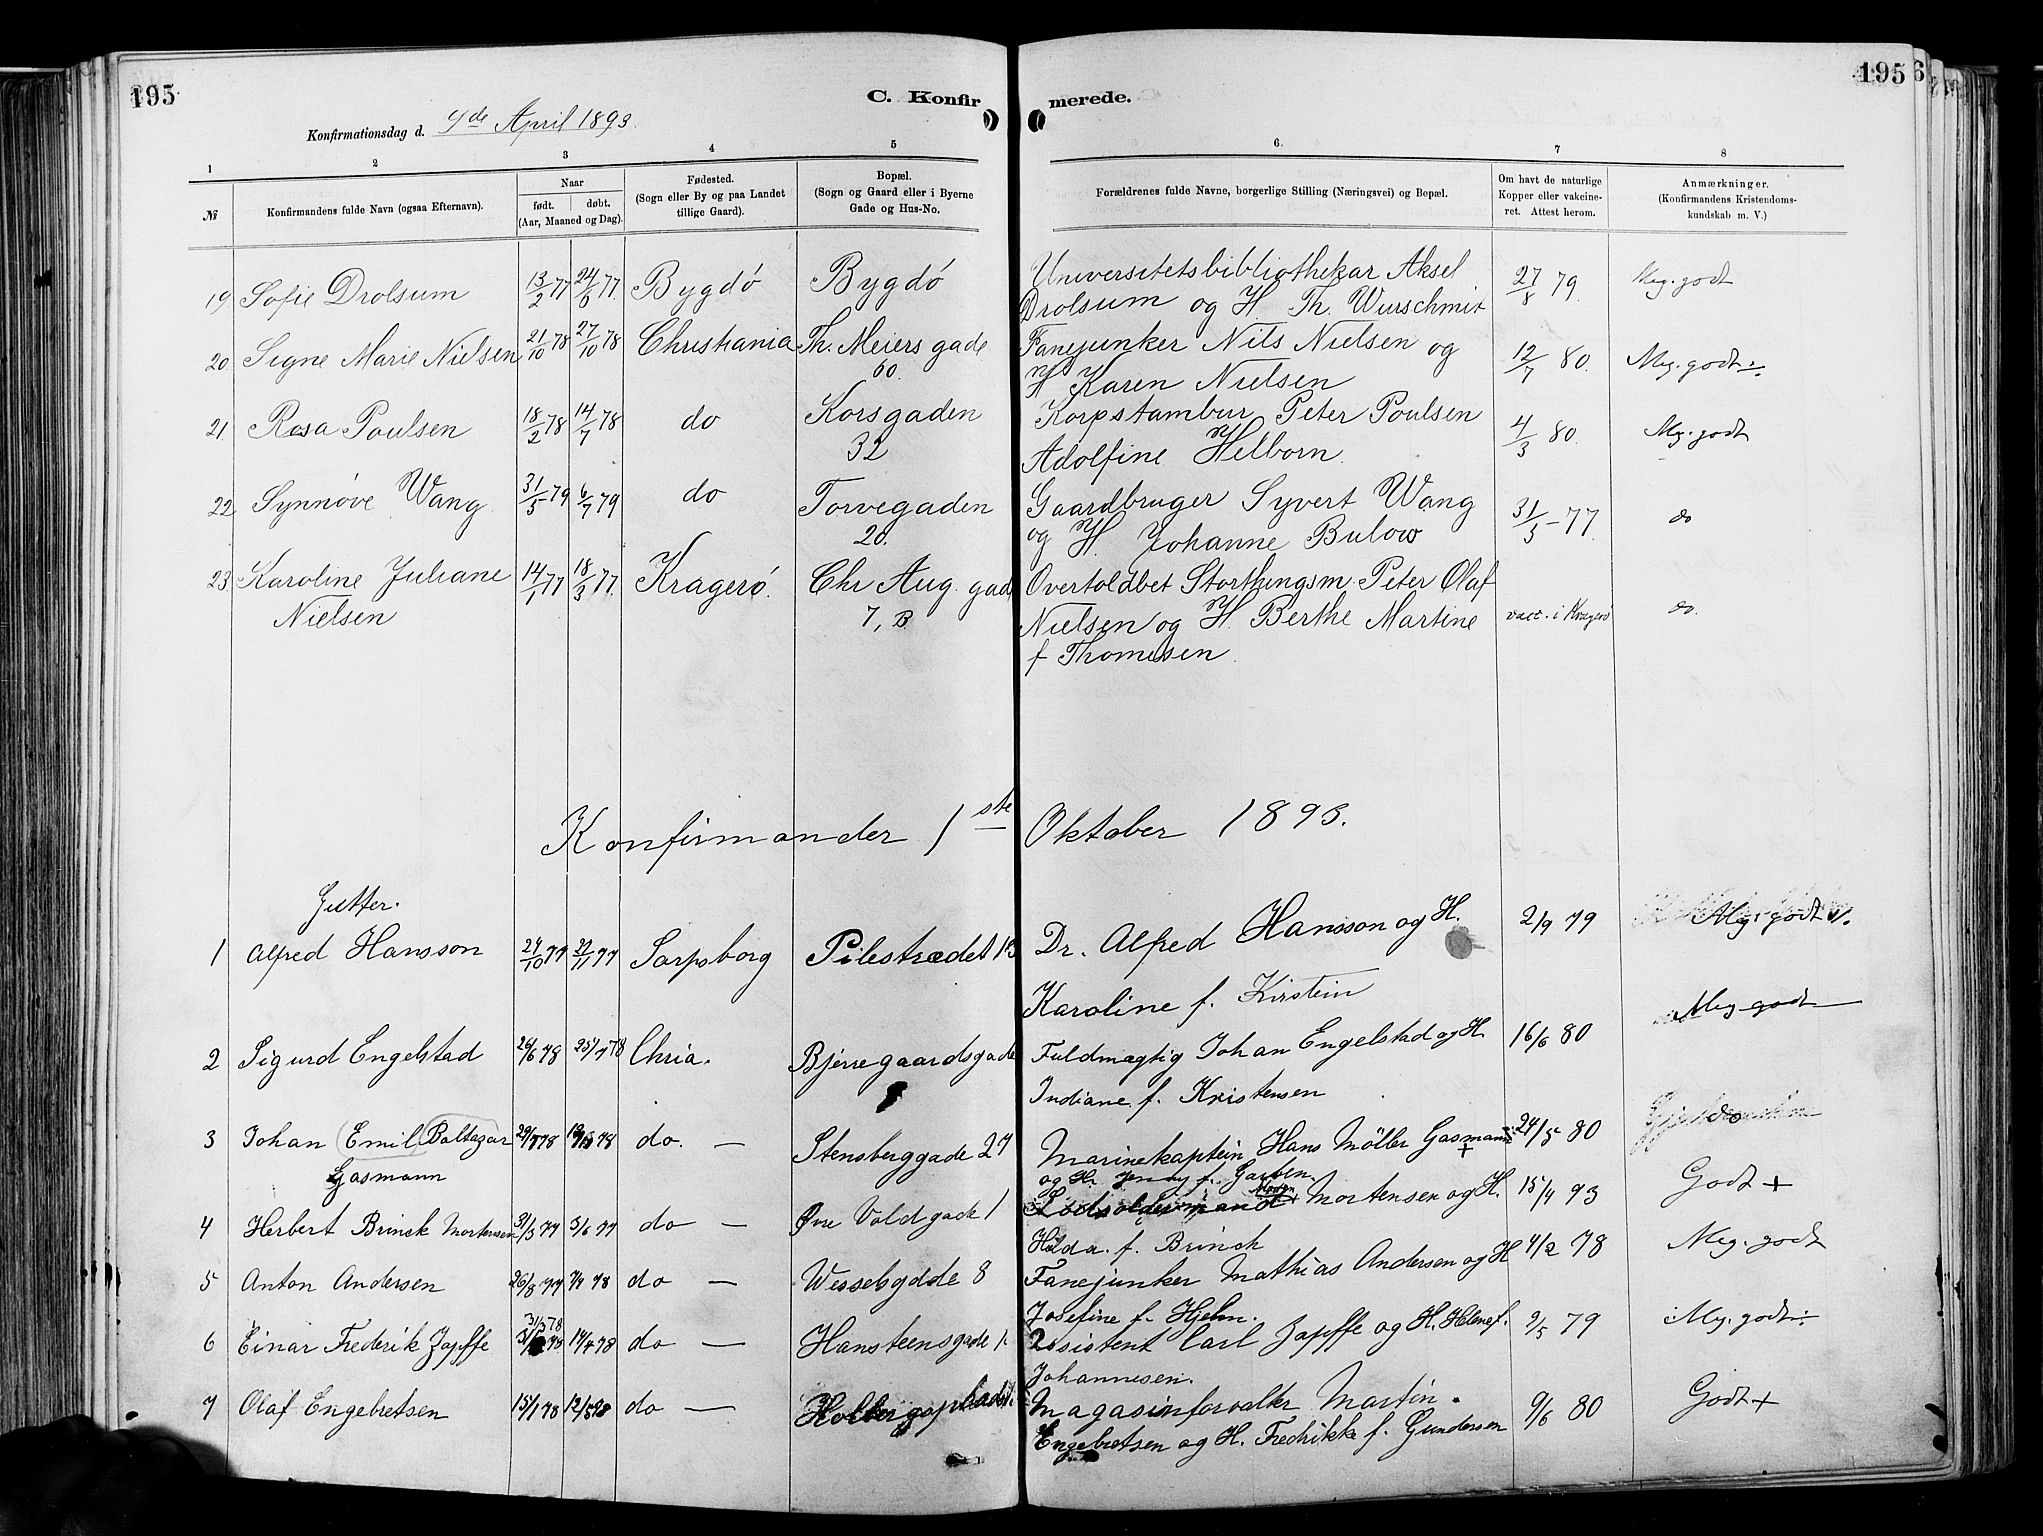 195
195
C. Konfir
merede.
Konfirmationsdag d. 9de April 1893.
1
2
3
4
5
6.
7
8
№
Konfirmandens fulde Navn (ogsaa Efternavn).
Naar
født.
døbt.
(Aar, Maaned og Dag).
Fødested.
(Sogn eller By og paa Landet
tillige Gaard).
Bopæl.
(Sogn og Gaard eller i Byerne
Gade og Hus-No.
Forældrenes fulde Navne, borgerlige Stilling (Næringsvei) og Bopæl.
Om havt de naturlige
Kopper eller vakcine-
ret. Attest herom.
Anmærkninger.
(Konfirmandens Kristendoms-
kundskab m. V.)
19 Sofie Drolsum 13/2 77 24/6 77. Bygdö Bygdö Universitetsbibliothekar Aksel 27/8 79. Meg. godt
Drolsum og H. Th. Wurschmit
20. Signe Marie Nielsen 21/10 78 27/10 78 Christiania Th. Meiers gade Fanejunker Nils Nielsen og 12/7 80. Meg. godt÷
60. H Karen Nielsen
21. Rosa Poulsen 18/2 78 14/7 78 do Korsgaden Korpstambur Peter Poulsen 4/3 80. Mg. godt
32 Adolfine Helborn
22. Synnöve Wang 31/5 79 6/7 79 do Torvegaden Gaardbruger Syvert Wang 31/5 - 77. do
20. og H. Johanne Bulow
23. Karoline Juliane 14/1 77 18/3 77. Kragerö. Chr Aug. gad Overtoldbet Storthingsm. Peter Olaf
Nielsen 7, B Nielsen og H. Berthe Martine vacc. i Kragerö do.
f Thomesen
Konfirmander 1ste Oktober 1893.
Gutter.
1 Alfred Hansson 24/10 77 22/11 77 Sarpsborg Pilestrædet 13 Dr. Alfred Hansson og H. 2/9 79 Mg. godt
Karoline f. Kirstein
2 Sigurd Engelstad 26/6 78 25/7 78 Chria. Bjerregaardsgade Fuldmægtig Johan Engelstad og H. 16/6 80 Meg godt
Indiane f. Kristensen
3 Johan (Emil Baltazar 29/7 78 do. — Stensberggade 27 Marinekaptein Hans Möller Gasmann 24/5 80 do
Gasmann og H. Jenny f. Garben
4 Herbert Brinck Mortensen 31/3 77 3/6 77 do — Øvre Voldgade 1 Lodsoldermand Mortensen og H. 15/4 93 Godt +
Hilda. f. Brinck
5 Anton Andersen 26/8 77 7/9 78 do — Wesselsgade 8 Fanejunker Mathias Andersen og H 4/2 78 Meg. godt
Josefine f. Hjelm.
6 Einar Frederik Japffe 31/3 78 14/4 78 do — Hansteensgade Assistent Carl Japffe og H. Helene f. 2/5 79 Mg. godt ÷
Johannesen.
7 Olaf Engebretsen 15/1 78 12/5 78 do — Magasinforvalter Martin 9/6 80 Godt +
Engebretsen og H. Fredrikke f. Gundersen